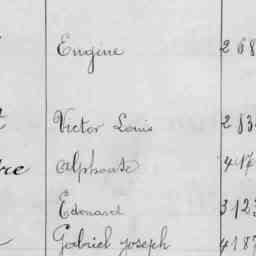 Eugène 268
Victor Louis 283
Alphonse 417
Edouard 3123
Gabriel Joseph 4187